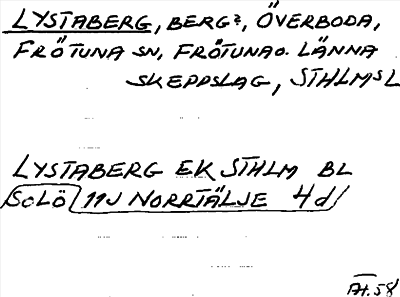 LYSTABERG, BERG?, ÖVERBODA,
FRÖTUNA SN, FRÖTUNA O. LÄNNA
SKEPPSLAG, STHLMS L
LYSTABERG EK STHLM BL
SOLÖ 11J NORRTÄLJE 4d